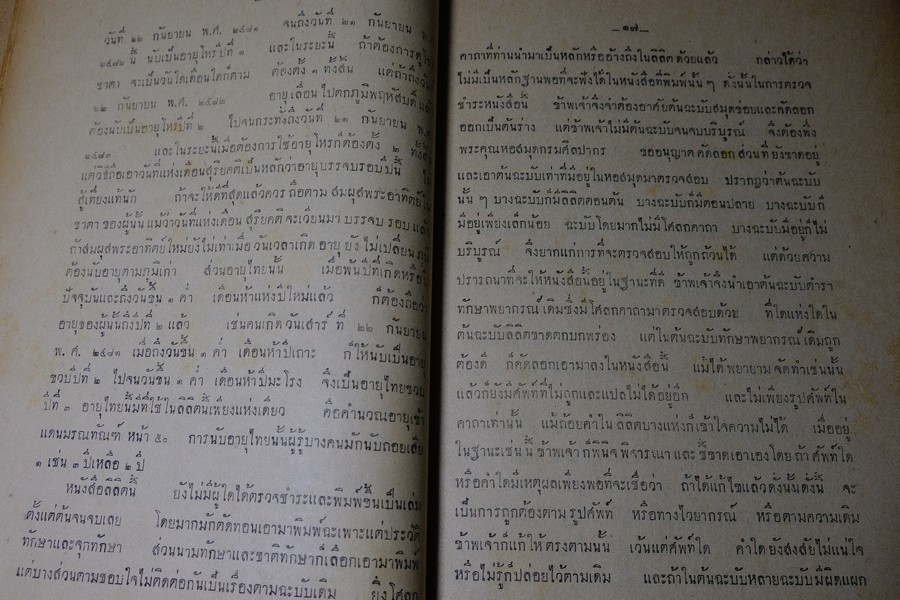 วันที่ ๒๒ กันยายน พ.ศ. ๒๔๘๑ จนถึงวันที่ ๒๑ กันยายน พ.ศ.
๒๔๘๒ นี้ นับเป็นอายุโหรปีที่ ๑ และในระยะนี้ ถ้าต้องการดู
ชาตา จะเป็นวันใดเดือนใดก็ตาม ต้องตั้ง ๑ ทั้งสิ้น แต่ถ้าถึงวัน
๒๒ กันยายน พ.ศ. ๒๔๘๒ อายุเลื่อนไปตกภูมิพฤหัสบดี
ต้องนับเป็นอายุโหรปีที่ ๒ ไปจนกระทั่งถึงวันที่ ๒๑ กันยายน พ.ศ.
๒๔๘๓ และในระยะนี้เมื่อต้องการใช้อายุโหรก็ต้องตั้ง ๒ ทั้งสิ้น
แต่วิธีถือเอาวันที่แห่งเดือนสุริยคติเป็นหลักว่าอายุบรรจบรอบปีนั้น
สู้เที่ยงแท้นัก ถ้าจะให้ดีที่สุดแล้วควรถือตามสมผุสพระอาทิตย์
ชาตาของผู้นั้น แม้ว่าวันที่แห่งเดือนสุริยคติจะเวียนมาบรรจบรอบแล้ว
ถ้าสมผุสพระอาทิตย์ใหม่ยังไม่เท่าเมื่อวันเวลาเกิด อายุยังไม่เปลี่ยนภูมิ
ต้องนับอายุตามภูมิเก่า ส่วนอายุไทยนั้น เมื่อพ้นปีที่เกิดหรือ
ปัจจุบันและถึงวันขึ้น ๑ ค่ำ เดือนห้าแห่งปีใหม่แล้ว ก็ต้องถือว่า
อายุของผู้นั้นถึงปีที่ ๒ แล้ว เช่นคนเกิดวันเสาร์ ที่ ๒๒ กันยายน
พ.ศ. ๒๔๘๑ เมื่อถึงวันขึ้น ๑ ค่ำ เดือนห้าปีเถาะ ก็ให้นับเป็นอายุ
ขวบปีที่ ๒ ไปจนวันขึ้น ๑ ค่ำ เดือนห้าปีมะโรง จึงเป็นอายุไทยขวบ
ปีที่ ๓ อายุไทยนี้มีที่ใช้ในลิลิตนี้เพียงแห่งเดียว คือคำนวณอายุเข้า
แดนมรณทัณฑ์ หน้า ๕๐ การนับอายุไทยนั้นผู้รู้บางคนมักนับถอยเสีย
๑ เช่น ๓ ปีเหลือ ๒ ปี
หนังสือลิลิตนี้ ยังไม่มีผู้ใดได้ตรวจชำระและพิมพ์ขึ้นเป็นเล่ม
ตั้งแต่ต้นจนจบเลย โดยมากมักตัดทอนเอามาพิมพ์ฉะเพาะแต่ประวัติ
ทักษาและจุกทักษา ส่วนนามทักษาและชาติทักษาก็เลือกเอามาพิมพ์
แต่บางส่วนตามชอบใจไม่ติดต่อกันเป็นเรื่องตามฉะบับเดิม ยิ่งโศลก
—๑๗—
คาถาที่ท่านนำมาเป็นหลักหรืออ้างถึงในลิลิตด้วยแล้ว กล่าวได้ว่า
ไม่มีเป็นหลักฐานพอที่จะฟังได้ในหนังสือที่พิมพ์นั้น ๆ ดังนั้นในการตรวจ
ชำระหนังสือนี้ ข้าพเจ้าจึงจำต้องอาศัยต้นฉะบับสมุดข่อยและคัดลอก
ออกเป็นต้นร่าง แต่ข้าพเจ้าไม่มีต้นฉะบับจนจบบริบูรณ์ จึงต้องพึ่ง
พระคุณหอสมุดกรมศิลปากร ขออนุญาตคัดลอกส่วนที่ยังขาดอยู่
และเอาต้นฉะบับเท่าที่มีอยู่ในหอสมุดมาตรวจสอบ ปรากฏว่าต้นฉะบับ
นั้น ๆ บางฉะบับก็มีลิลิตตอนต้น บางฉะบับก็มีตอนปลาย บางฉะบับก็
มีอยู่เพียงเล็กน้อย ฉะบับโดยมากไม่มีโศลกคาถา บางฉะบับมีอยู่ก็ไม่
บริบูรณ์ จึงยากแก่การที่จะตรวจสอบให้ถูกถ้วนได้ แต่ด้วยความ
ปรารถนาที่จะให้หนังสือนี้อยู่ในฐานะที่ดี ข้าพเจ้าจึงนำเอาต้นฉะบับตำรา
ทักษาพยากรณ์เดิมซึ่งมีโศลกคาถามาตรวจสอบด้วย ที่ใดแห่งใดใน
ต้นฉะบับลิลิตขาดตกบกพร่อง แต่ในต้นฉะบับทักษาพยากรณ์เดิมถูก
ต้องดี ก็คัดลอกเอามาลงในหนังสือนี้ แม้ได้พยายามจัดทำเช่นนั้น
แล้วก็ยังมีศัพท์ที่ไม่ถูกและแปลไม่ได้อยู่อีก และไม่เพียงรูปศัพท์ใน
คาถาเท่านั้น แม้ถ้อยคำในลิลิตบางแห่งก็เข้าใจความไม่ได้ เมื่ออยู่
ในฐานะเช่นนี้ ข้าพเจ้าก็พินิจพิจารณาและชี้ขาดเอาเองโดย ถ้าศัพท์ใด
หรือคำใดมีเหตุผลเพียงพอที่จะเชื่อว่า ถ้าได้แก้ไขแล้วดังนั้นดังนี้ จะ
เป็นการถูกต้องตามรูปศัพท์ หรือทางไวยากรณ์ หรือตามความเดิม
ข้าพเจ้าก็แก้ให้ตรงตามนั้น เว้นแต่ศัพท์ใด คำใด ยังสงสัยไม่แน่ใจ
หรือไม่รู้ก็ปล่อยไว้ตามเดิม และถ้าในต้นฉะบับหลายฉะบับมีผิดแผก